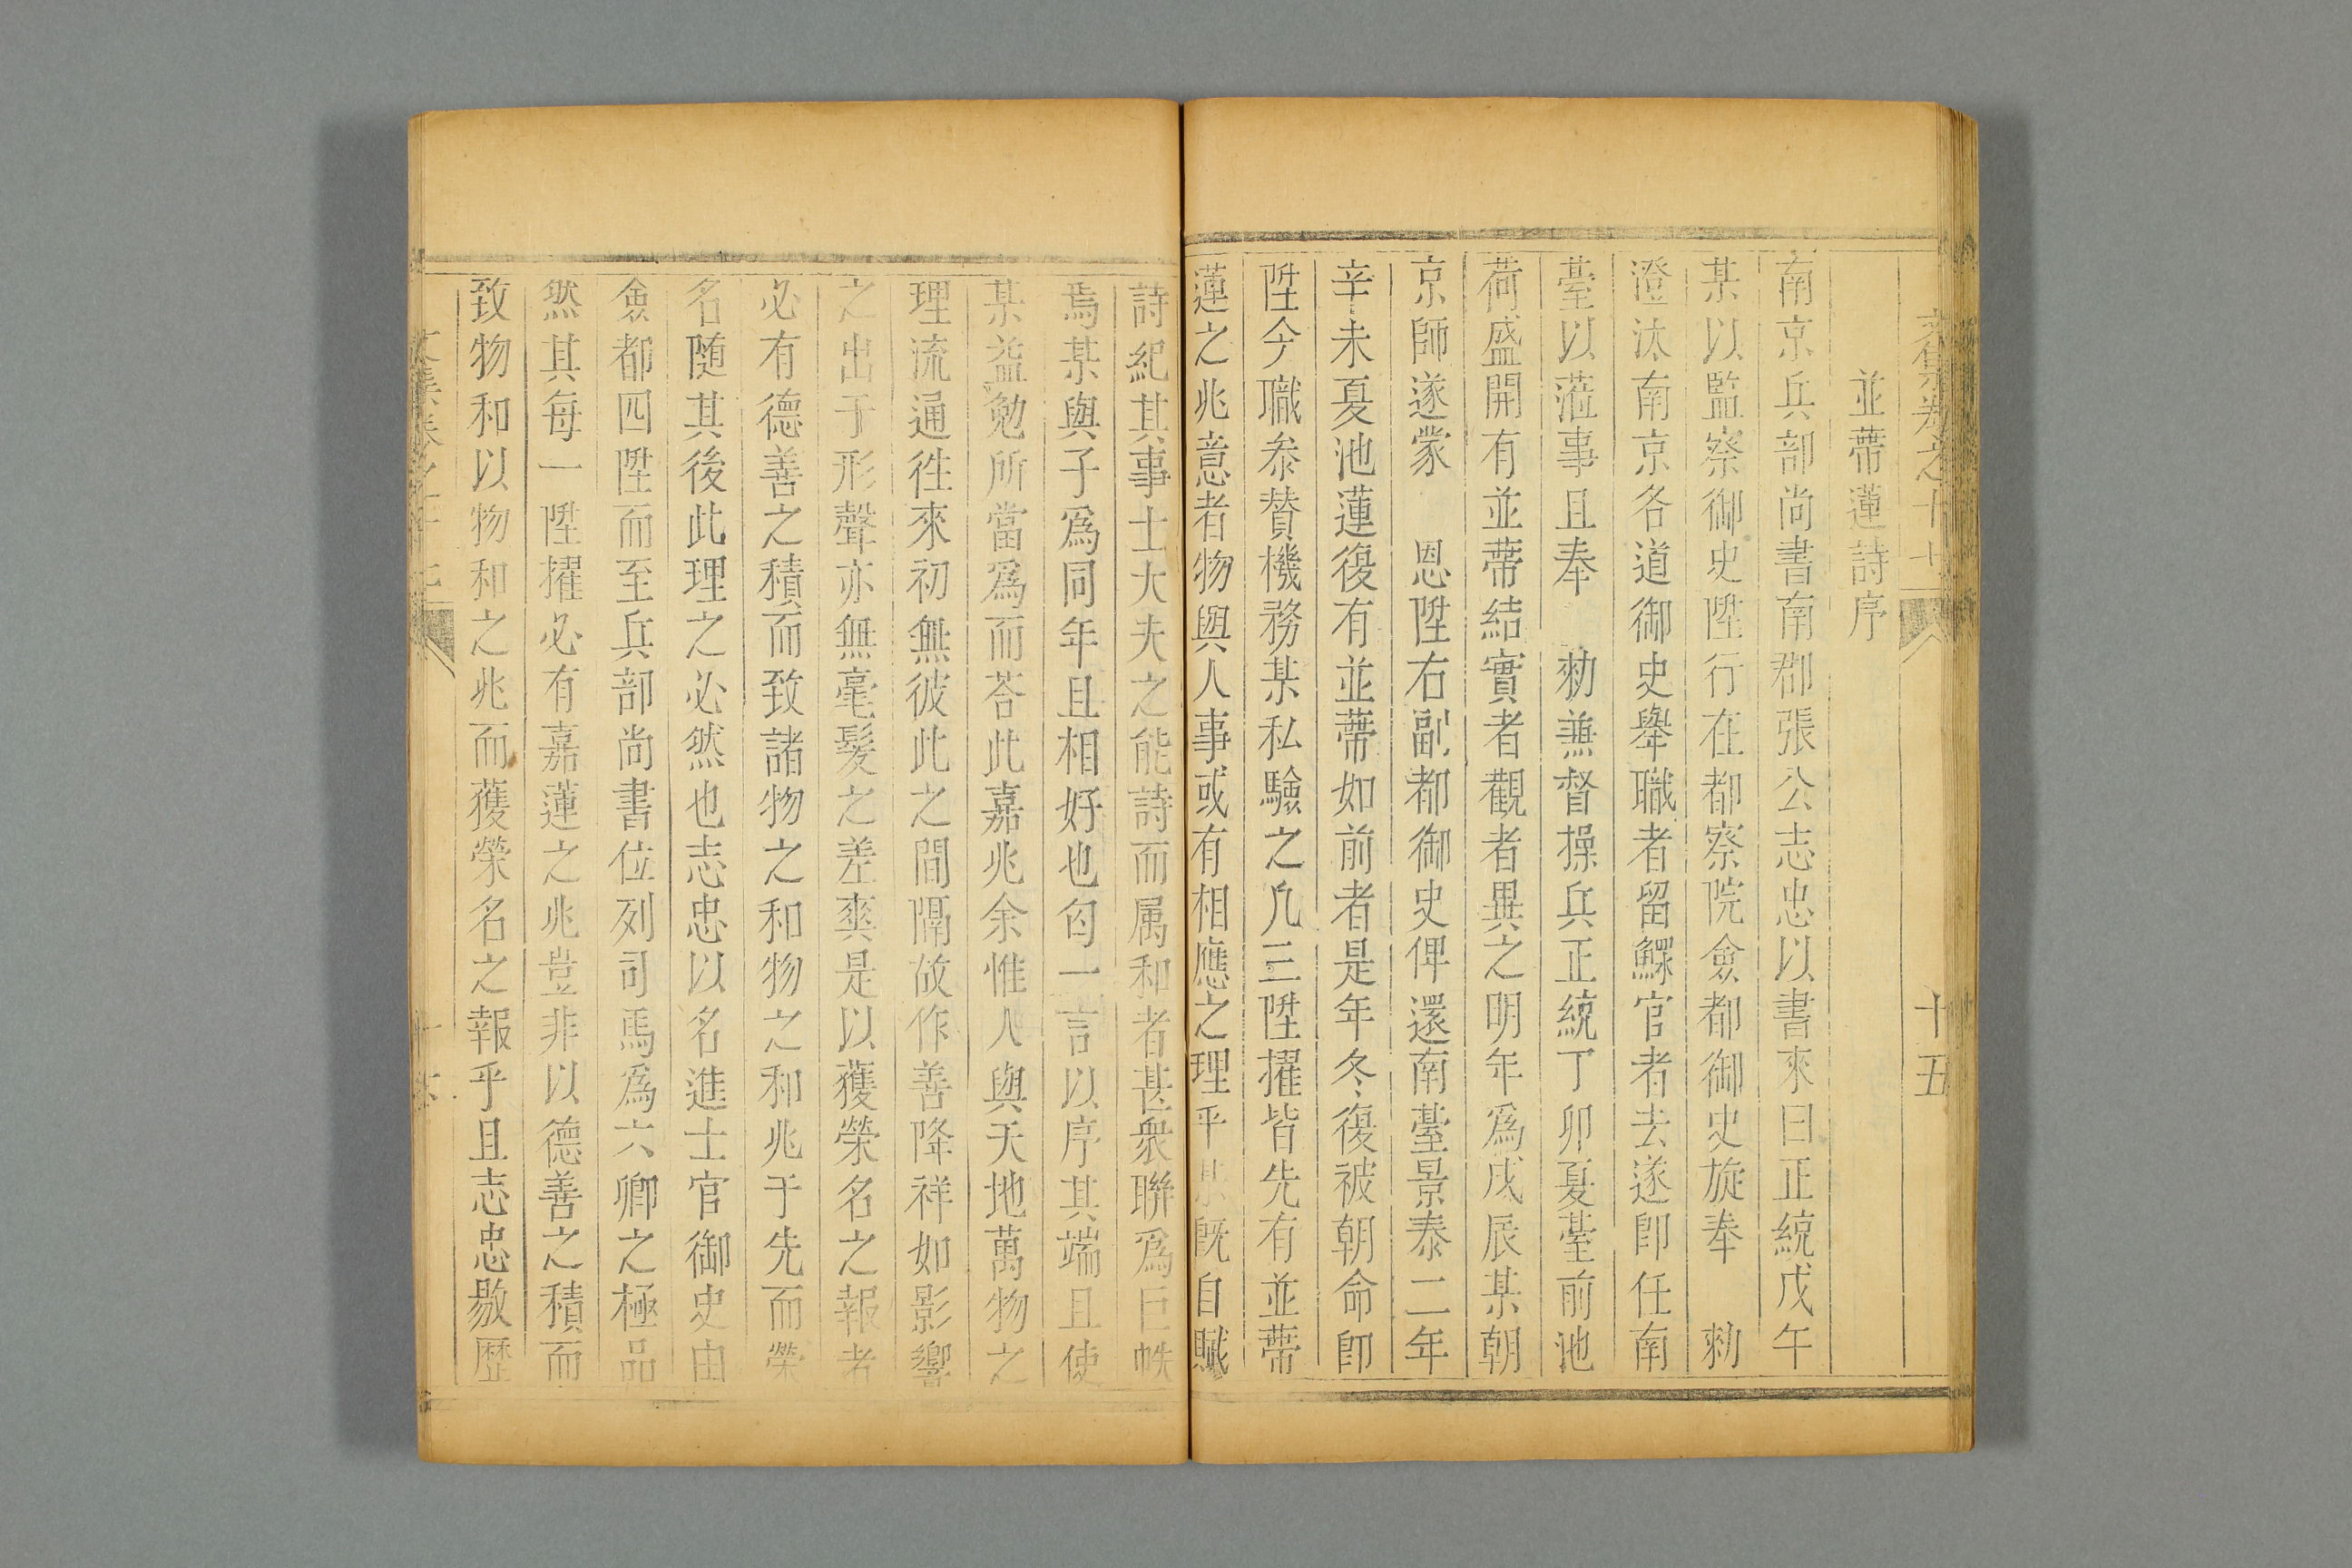 並蔕蓮詩序
南京兵部尚書南郡張公志忠以書來曰正統戊午
某以監察御史陞行在都察院僉都御史旋奉 勑
澄汰南京各道御史舉職者留鰥官者去遂卽任南
臺以蒞事且奉 勑兼督操兵正統丁卯夏臺前池
荷盛開有並蔕結實者觀者異之明年爲戊辰某朝
京師遂蒙 恩陞右副都御史俾還南臺景泰二年
辛未夏池蓮復有並蔕如前者是年冬復被朝命卽
陞今職叅贊機務某私驗之凡三陞擢皆先有並蔕
蓮之兆意者物與人事或有相應之理乎某旣自賦
詩紀其事士大夫之能詩而属和者甚衆聯爲巨帙
焉某與子爲同年且相好也匄一言以序其端且使
某益勉所當爲而荅此嘉兆余惟人與天地萬物之
理流通徃來初無彼此之間隔故作善降祥如影響
之出于形聲亦無毫髮之差爽是以獲榮名之報者
必有德善之積而致諸物之和物之和兆于先而榮
名随其後此理之必然也志忠以名進士官御史由
僉都四陞而至兵部尚書位列司馬爲六卿之極品
然其每一陞擢必有嘉蓮之兆豈非以德善之積而
致物和以物和之兆而獲榮名之報乎且志忠敭歷
十五